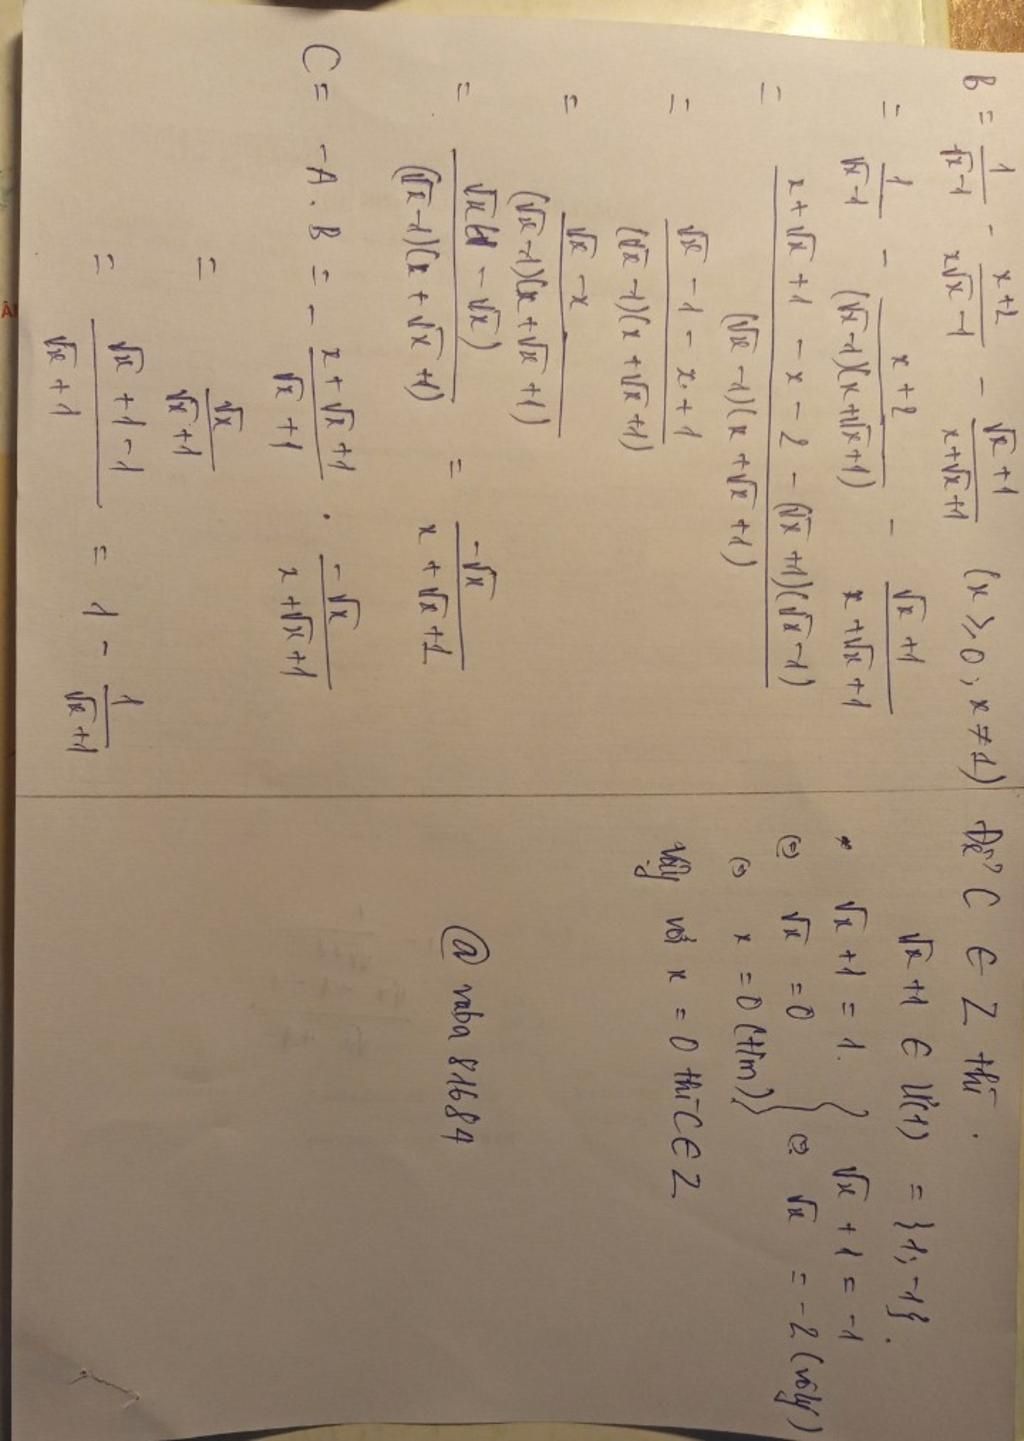 B = 1/(√x-1) - (x+2)/(x√x-1) - (√x+1)/(x+√x+1) (x ≥ 0, x ≠ 1)
= 1/(√x-1) - (x+2)/((√x-1)(x+√x+1)) - (√x+1)/(x+√x+1)
= (x+√x+1 - x - 2 - (√x+1)(√x-1))/((√x-1)(x+√x+1))
= (√x - 1 - x + 1)/((√x-1)(x+√x+1))
= (√x - x)/((√x-1)(x+√x+1))
= √x(1-√x)/((√x-1)(x+√x+1)) = -√x/(x+√x+1)
C = -A.B = - (x+√x+1)/(√x+1) . -√x/(x+√x+1)
= √x/(√x+1)
= (√x+1-1)/(√x+1) = 1 - 1/(√x+1)
Để C ∈ Z thì.
√x+1 ∈ Ư(1) = {1, -1}.
* √x+1 = 1. } √x+1 = -1
⇔ √x = 0 } ⇔ √x = -2 (vô lý)
⇔ x = 0 (t/m)
Vậy với x = 0 thì C ∈ Z
@ vaba 81684